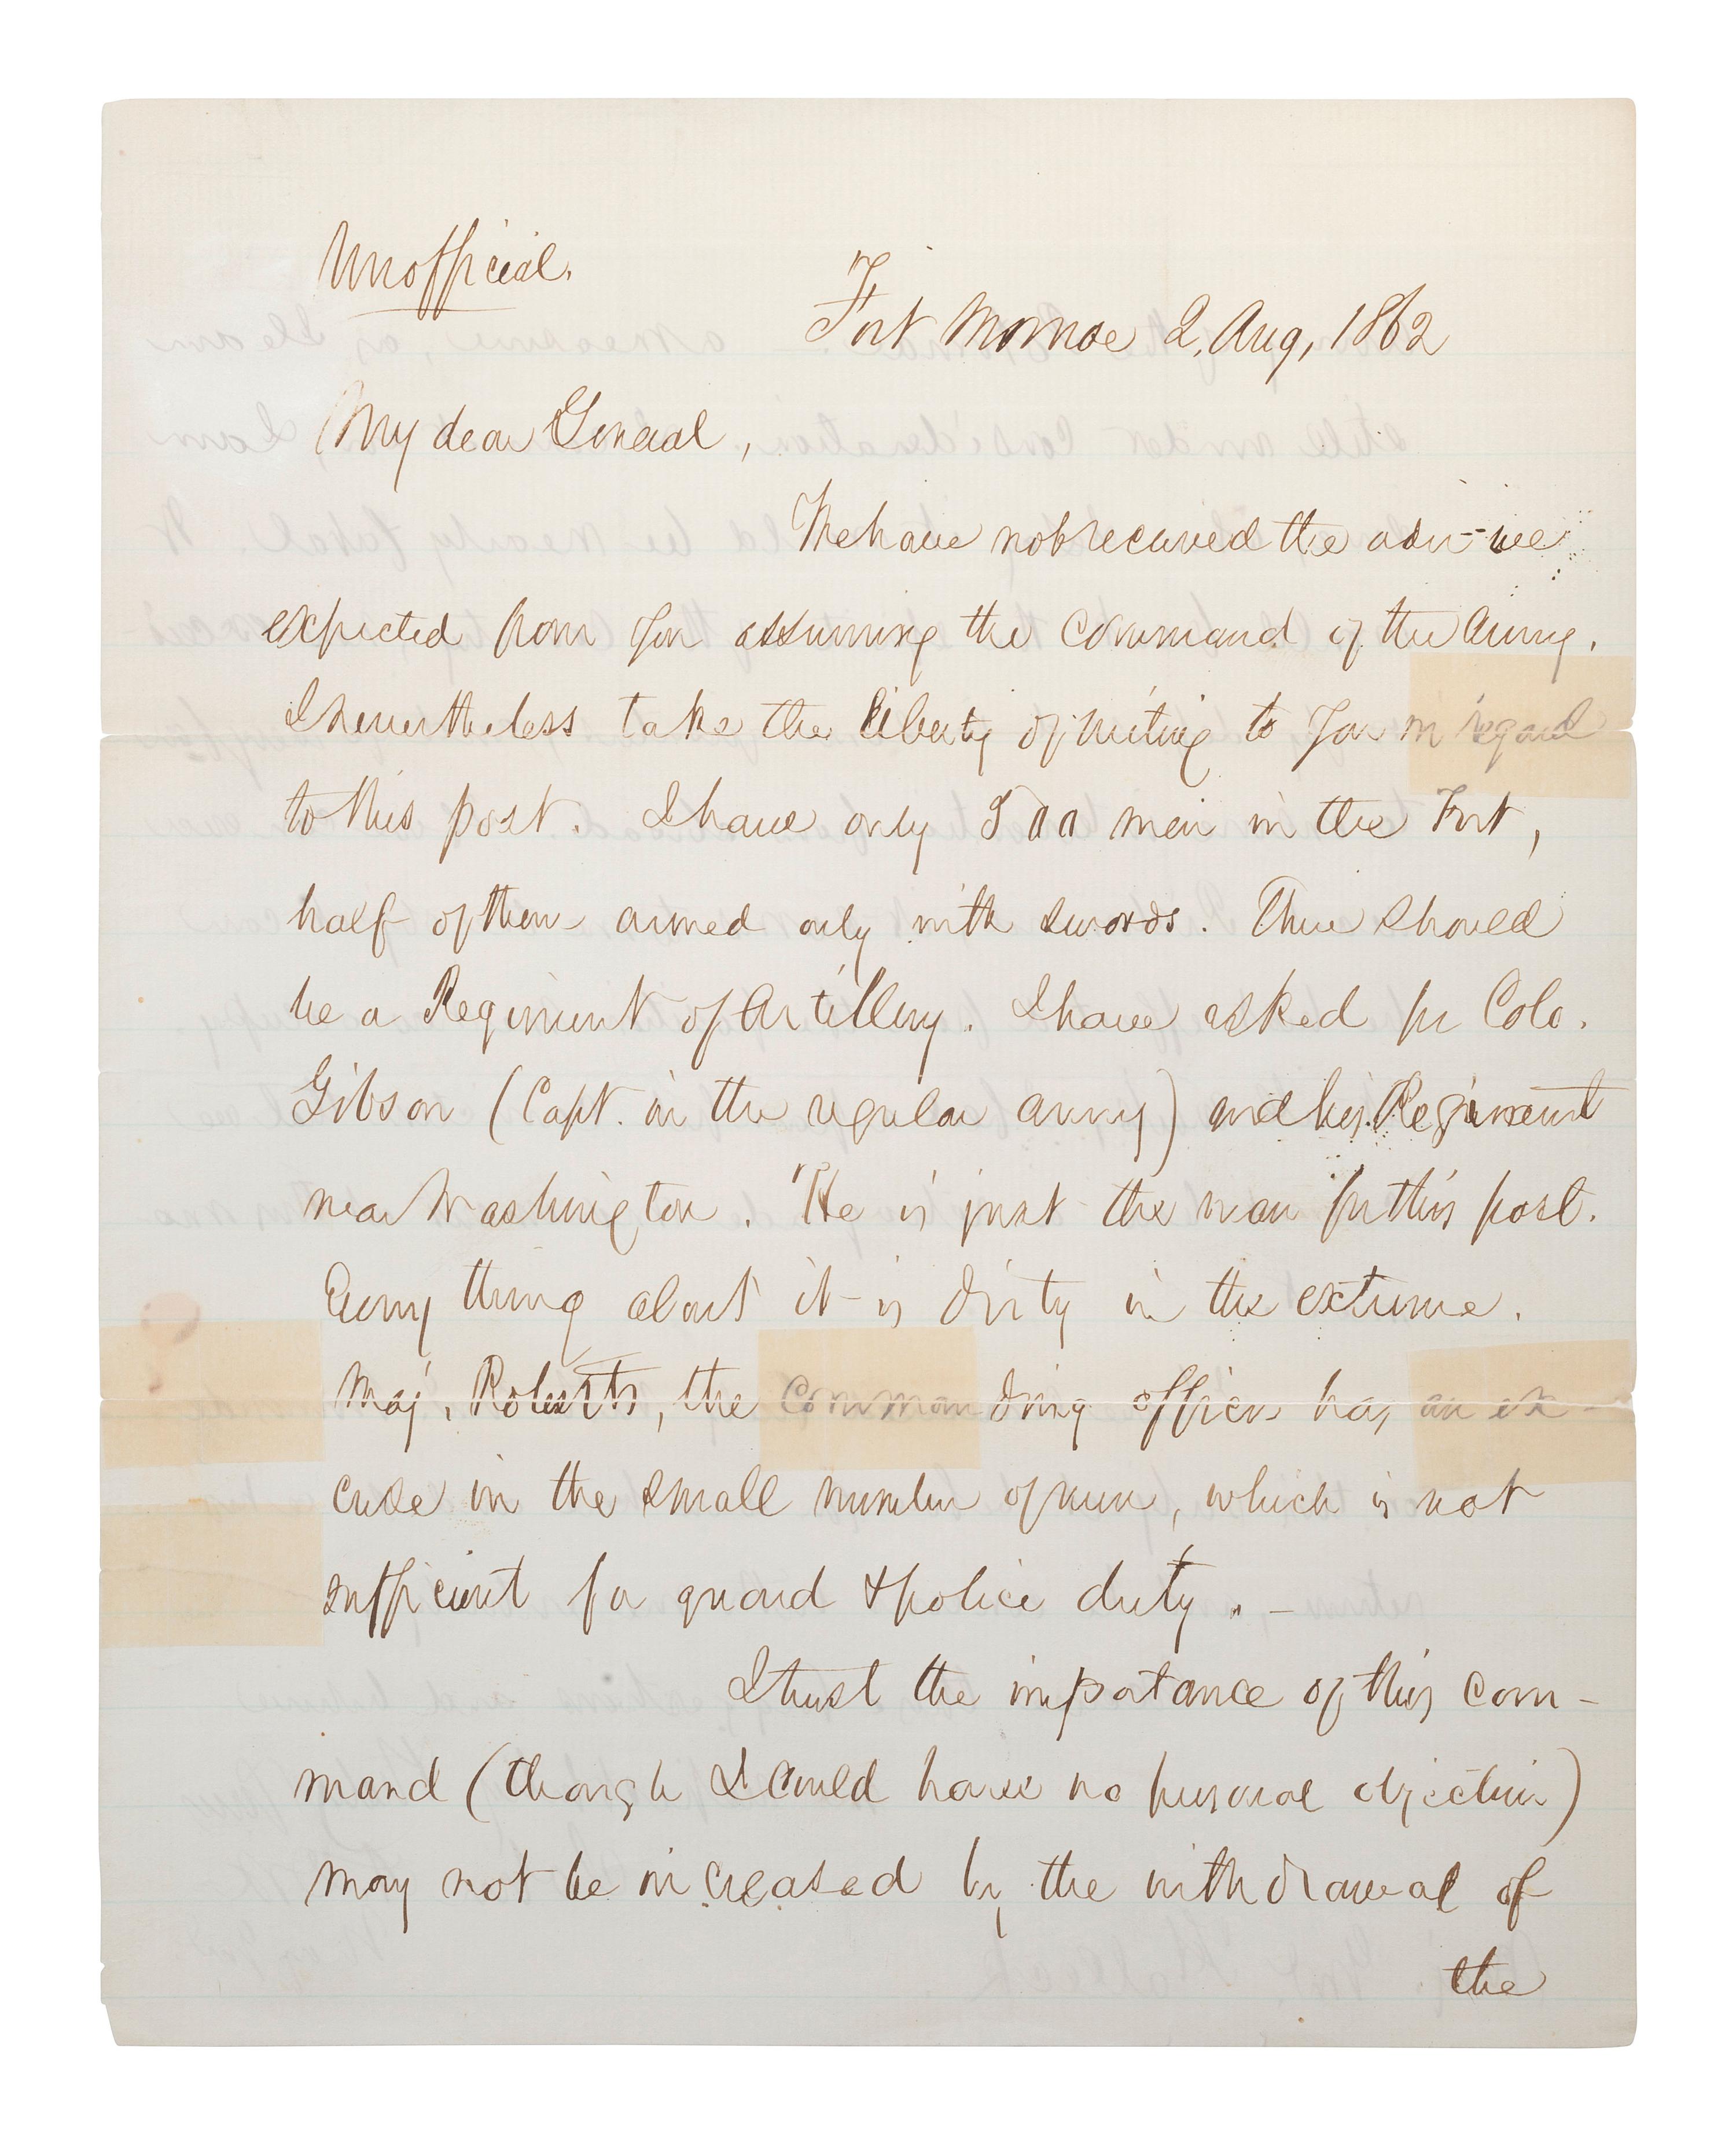 Unofficial.
Fort Monroe 2, Aug, 1862
My dear General,
We have not received the
expected from you assuming the command of the Army.
I nevertheless take the liberty of writing to you in regard
to this post. I have only men in the Fort,
half of them armed only with swords. There should
be a Regiment of Artillery. I have asked for Colo.
Gibson (Capt. in the regular army) and his Regiment
near Washington. He is just the man for this post.
Every thing about it is dirty in the extreme.
Maj, Roberts, the commanding officer has an ex-
cuse in the small number of men, which is not
sufficient for guard & police duty. -
I trust the importance of this com-
mand (though I could have no personal objection)
may not be increased by the withdrawal of
the